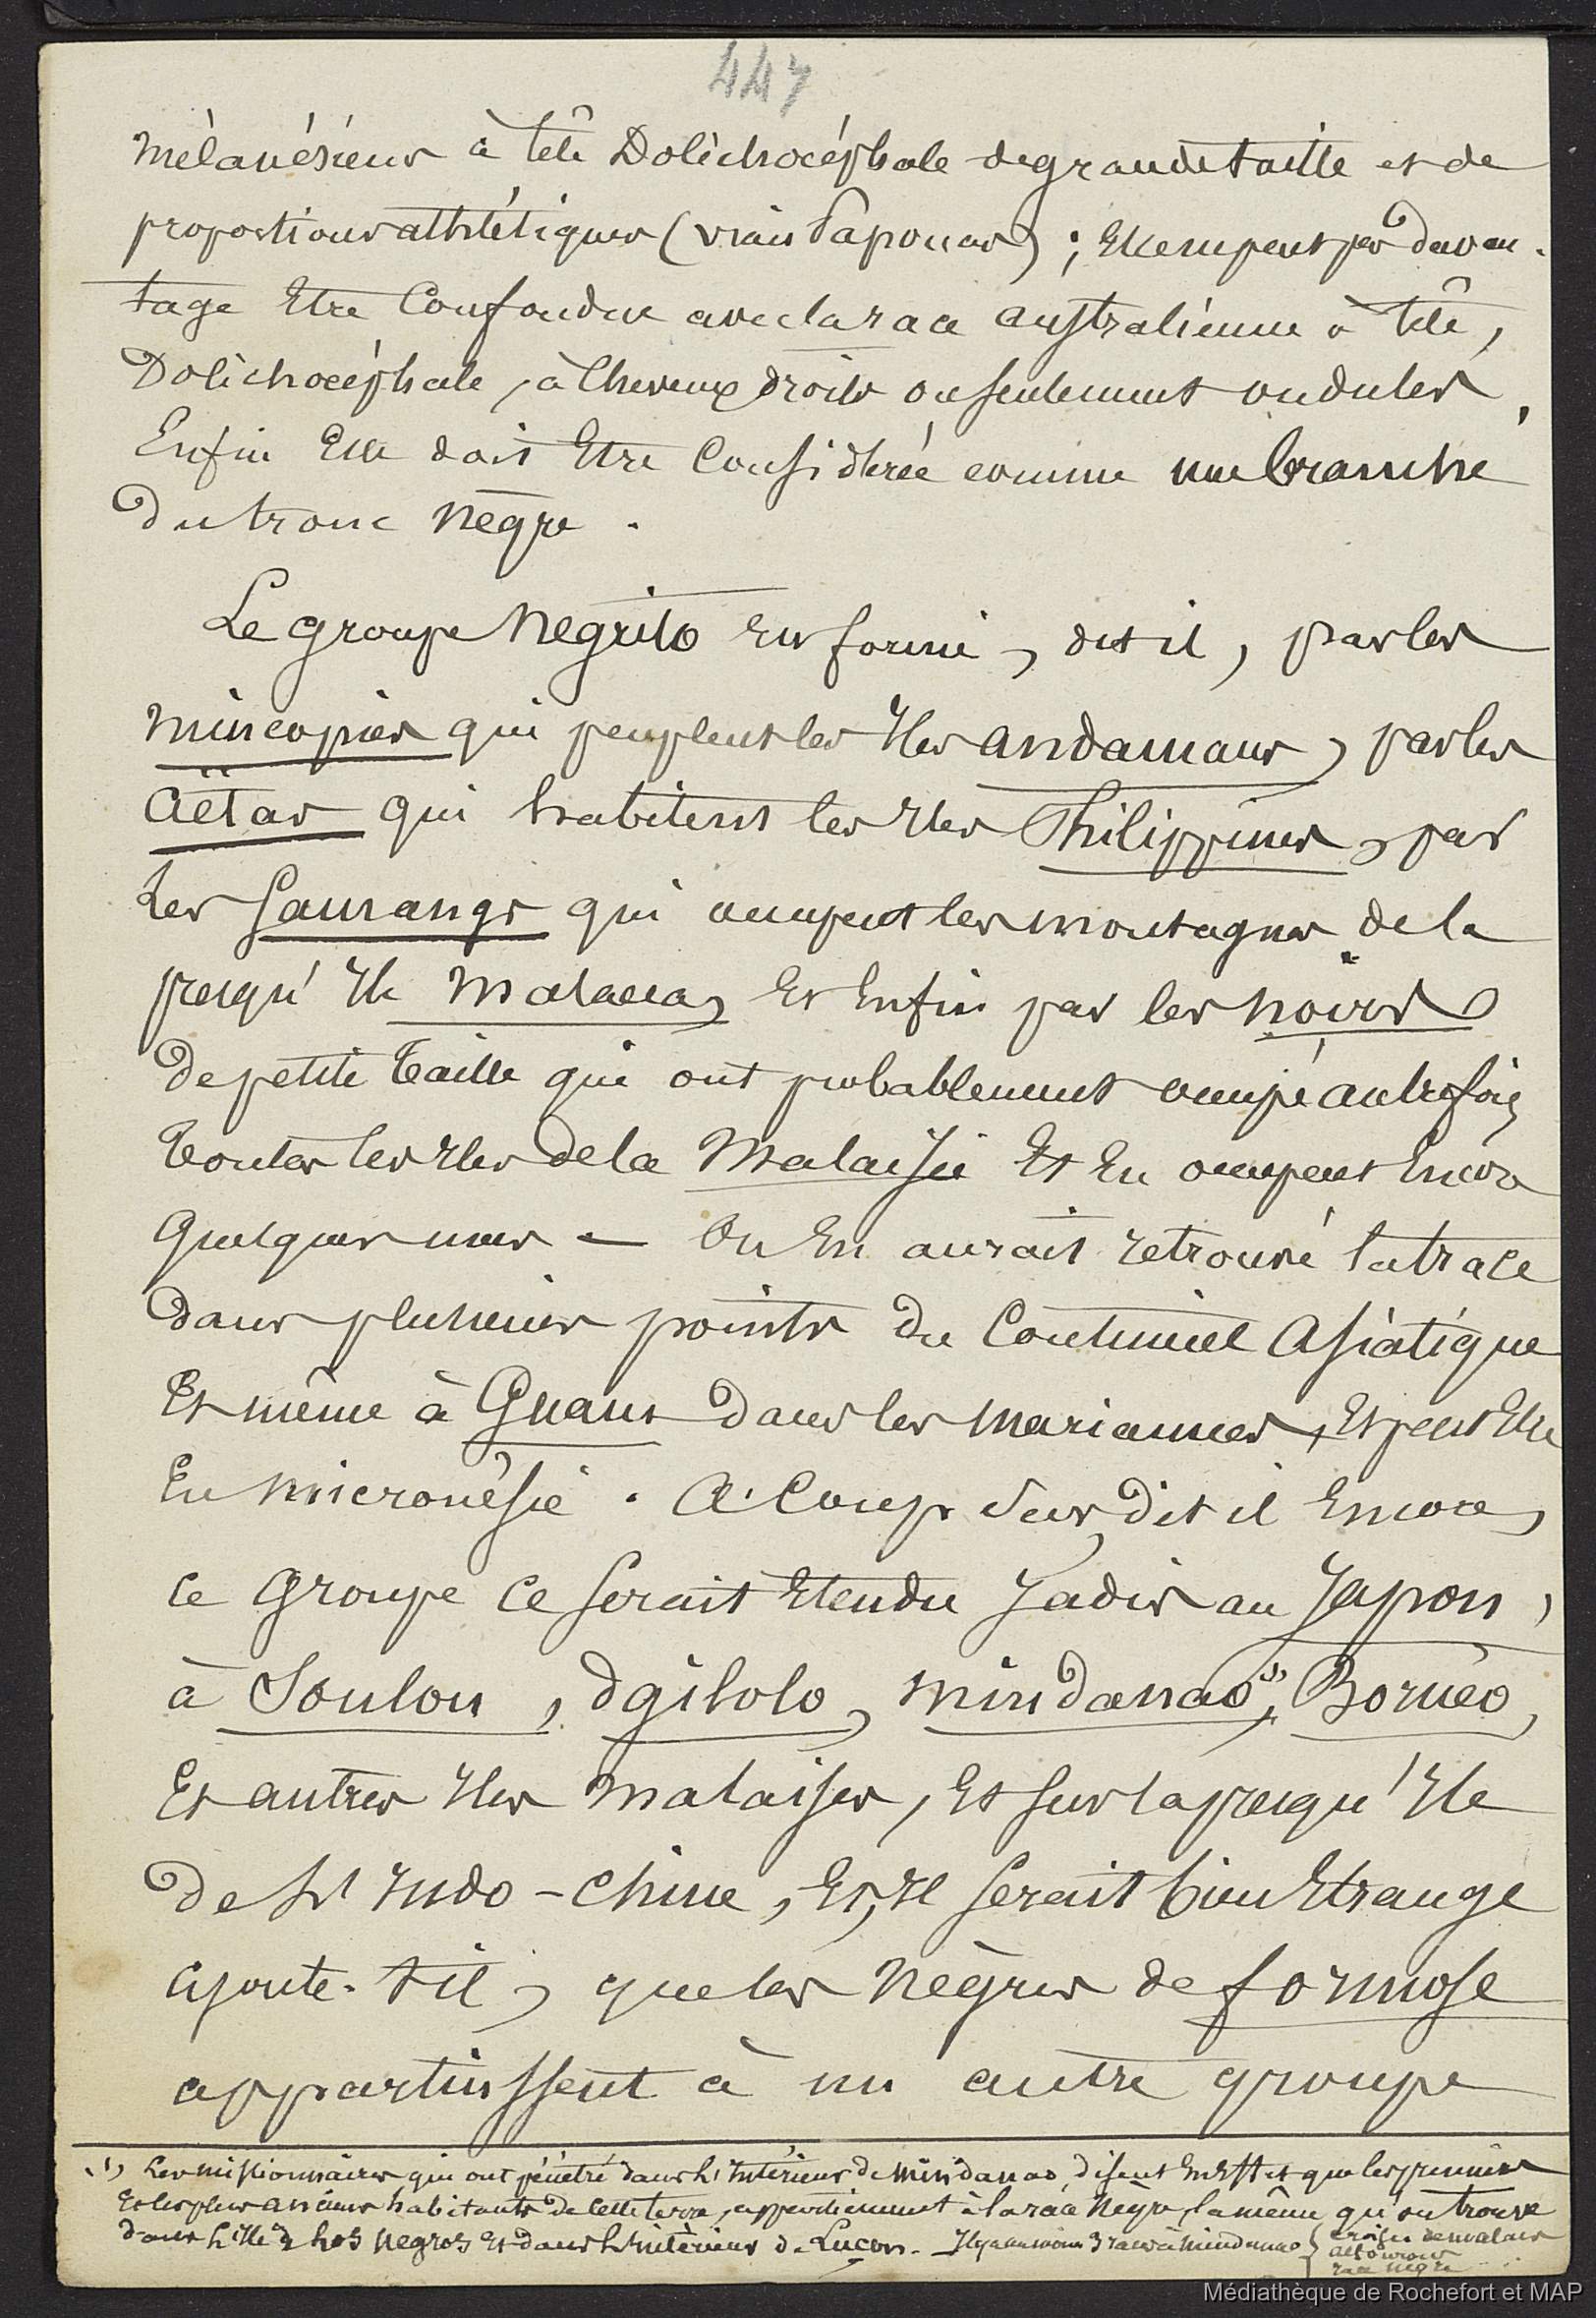 447
Mélanésiens à tête Dolichocéphale de grande taille et de
proportions athlétiques (vrais Papouas) ; Elle ne peut pas davan-
tage Etre Confondue avec la race australienne à tête,
Dolichocéphale, à Cheveux droits ou seulement ondulés,
Enfin Elle doit Etre Considérée comme une branche
Du tronc nègre.
Le groupe Négrito est formé, dit il, par les
mincopies qui peuplent les Iles andamans, par les
Aëtas qui habitent les Iles Philippines, par
les Samangs qui occupent les montagnes de la
presqu'Ile Malacca, Et Enfin par les noirs
De petite taille qui ont probablement occupé autrefois
Toutes les Iles de la Malaisie Et En occupent Encore
quelques unes — On En aurait retrouvé la trace
dans plusieurs points du Continent Asiatique
Et même à Guam dans les mariannes, Et peut Etre
En micronésie. A Coup Sur, dit il Encore,
ce groupe ce serait Etendu Jadis au Japon,
à Soulou, dgilolo, mindanao (1), Bornéo,
Et autres Iles malaises, Et sur la presqu'Ile
de l'Indo-chine, Et, Il serait bien Etrange
ajoute-t-il, que les nègres de formose
appartinssent à un autre groupe
(1) Les missionnaires qui ont pénétré dans l'Intérieur de mindanao, disent En Effet que les premiers
Et les plus anciens habitants de cette terre, appartiennent à la race Nègre, la même qu'on trouve
dans l'Ile de los Negros Et dans l'Intérieur de Luçon. — Il y a au moins 3 races à mindanao { croisée de malais
alfourous
race nègre
Médiathèque de Rochefort et MAP